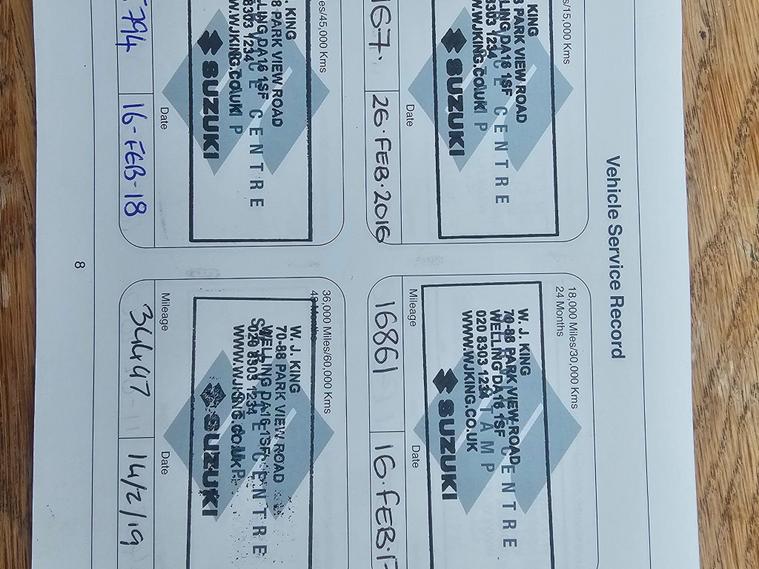 Vehicle Service Record
es/15,000 Kms
J. KING
8 PARK VIEW ROAD
LLING DA16 1SF
8303 1234
WWW.WJKING.CO.UK
CENTRE
SUZUKI
Date
167.
26.FEB.2016
18,000 Miles/30,000 Kms
24 Months
W. J. KING
70-88 PARK VIEW ROAD
WELLING DA16 1SF
020 8303 1234
WWW.WJKING.CO.UK
CENTRE
STAMP
SUZUKI
Mileage
Date
16861
16.FEB.1
es/45,000 Kms
J. KING
8 PARK VIEW ROAD
LLING DA16 1SF
8303 1234
WWW.WJKING.CO.UK
CENTRE
SUZUKI
Date
794
16-FEB-18
36,000 Miles/60,000 Kms
48 Months
W. J. KING
70-88 PARK VIEW ROAD
WELLING DA16 1SF
020 8303 1234
WWW.WJKING.CO.UK
CENTRE
SUZUKI
Mileage
Date
34447 Km
14/2/19
8